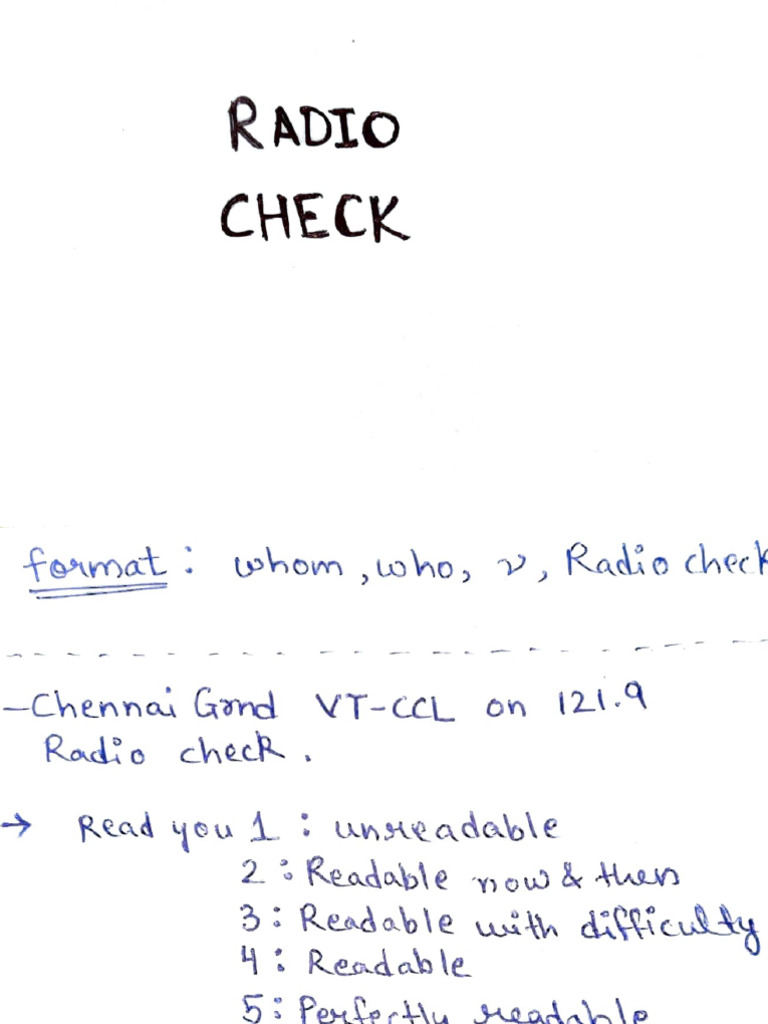 RADIO
CHECK
format : whom, who, ν, Radio check
- Chennai Grnd VT-CCL on 121.9
Radio check.
→ Read you 1 : unreadable
2 : Readable now & then
3 : Readable with difficulty
4 : Readable
5 : Perfectly readable